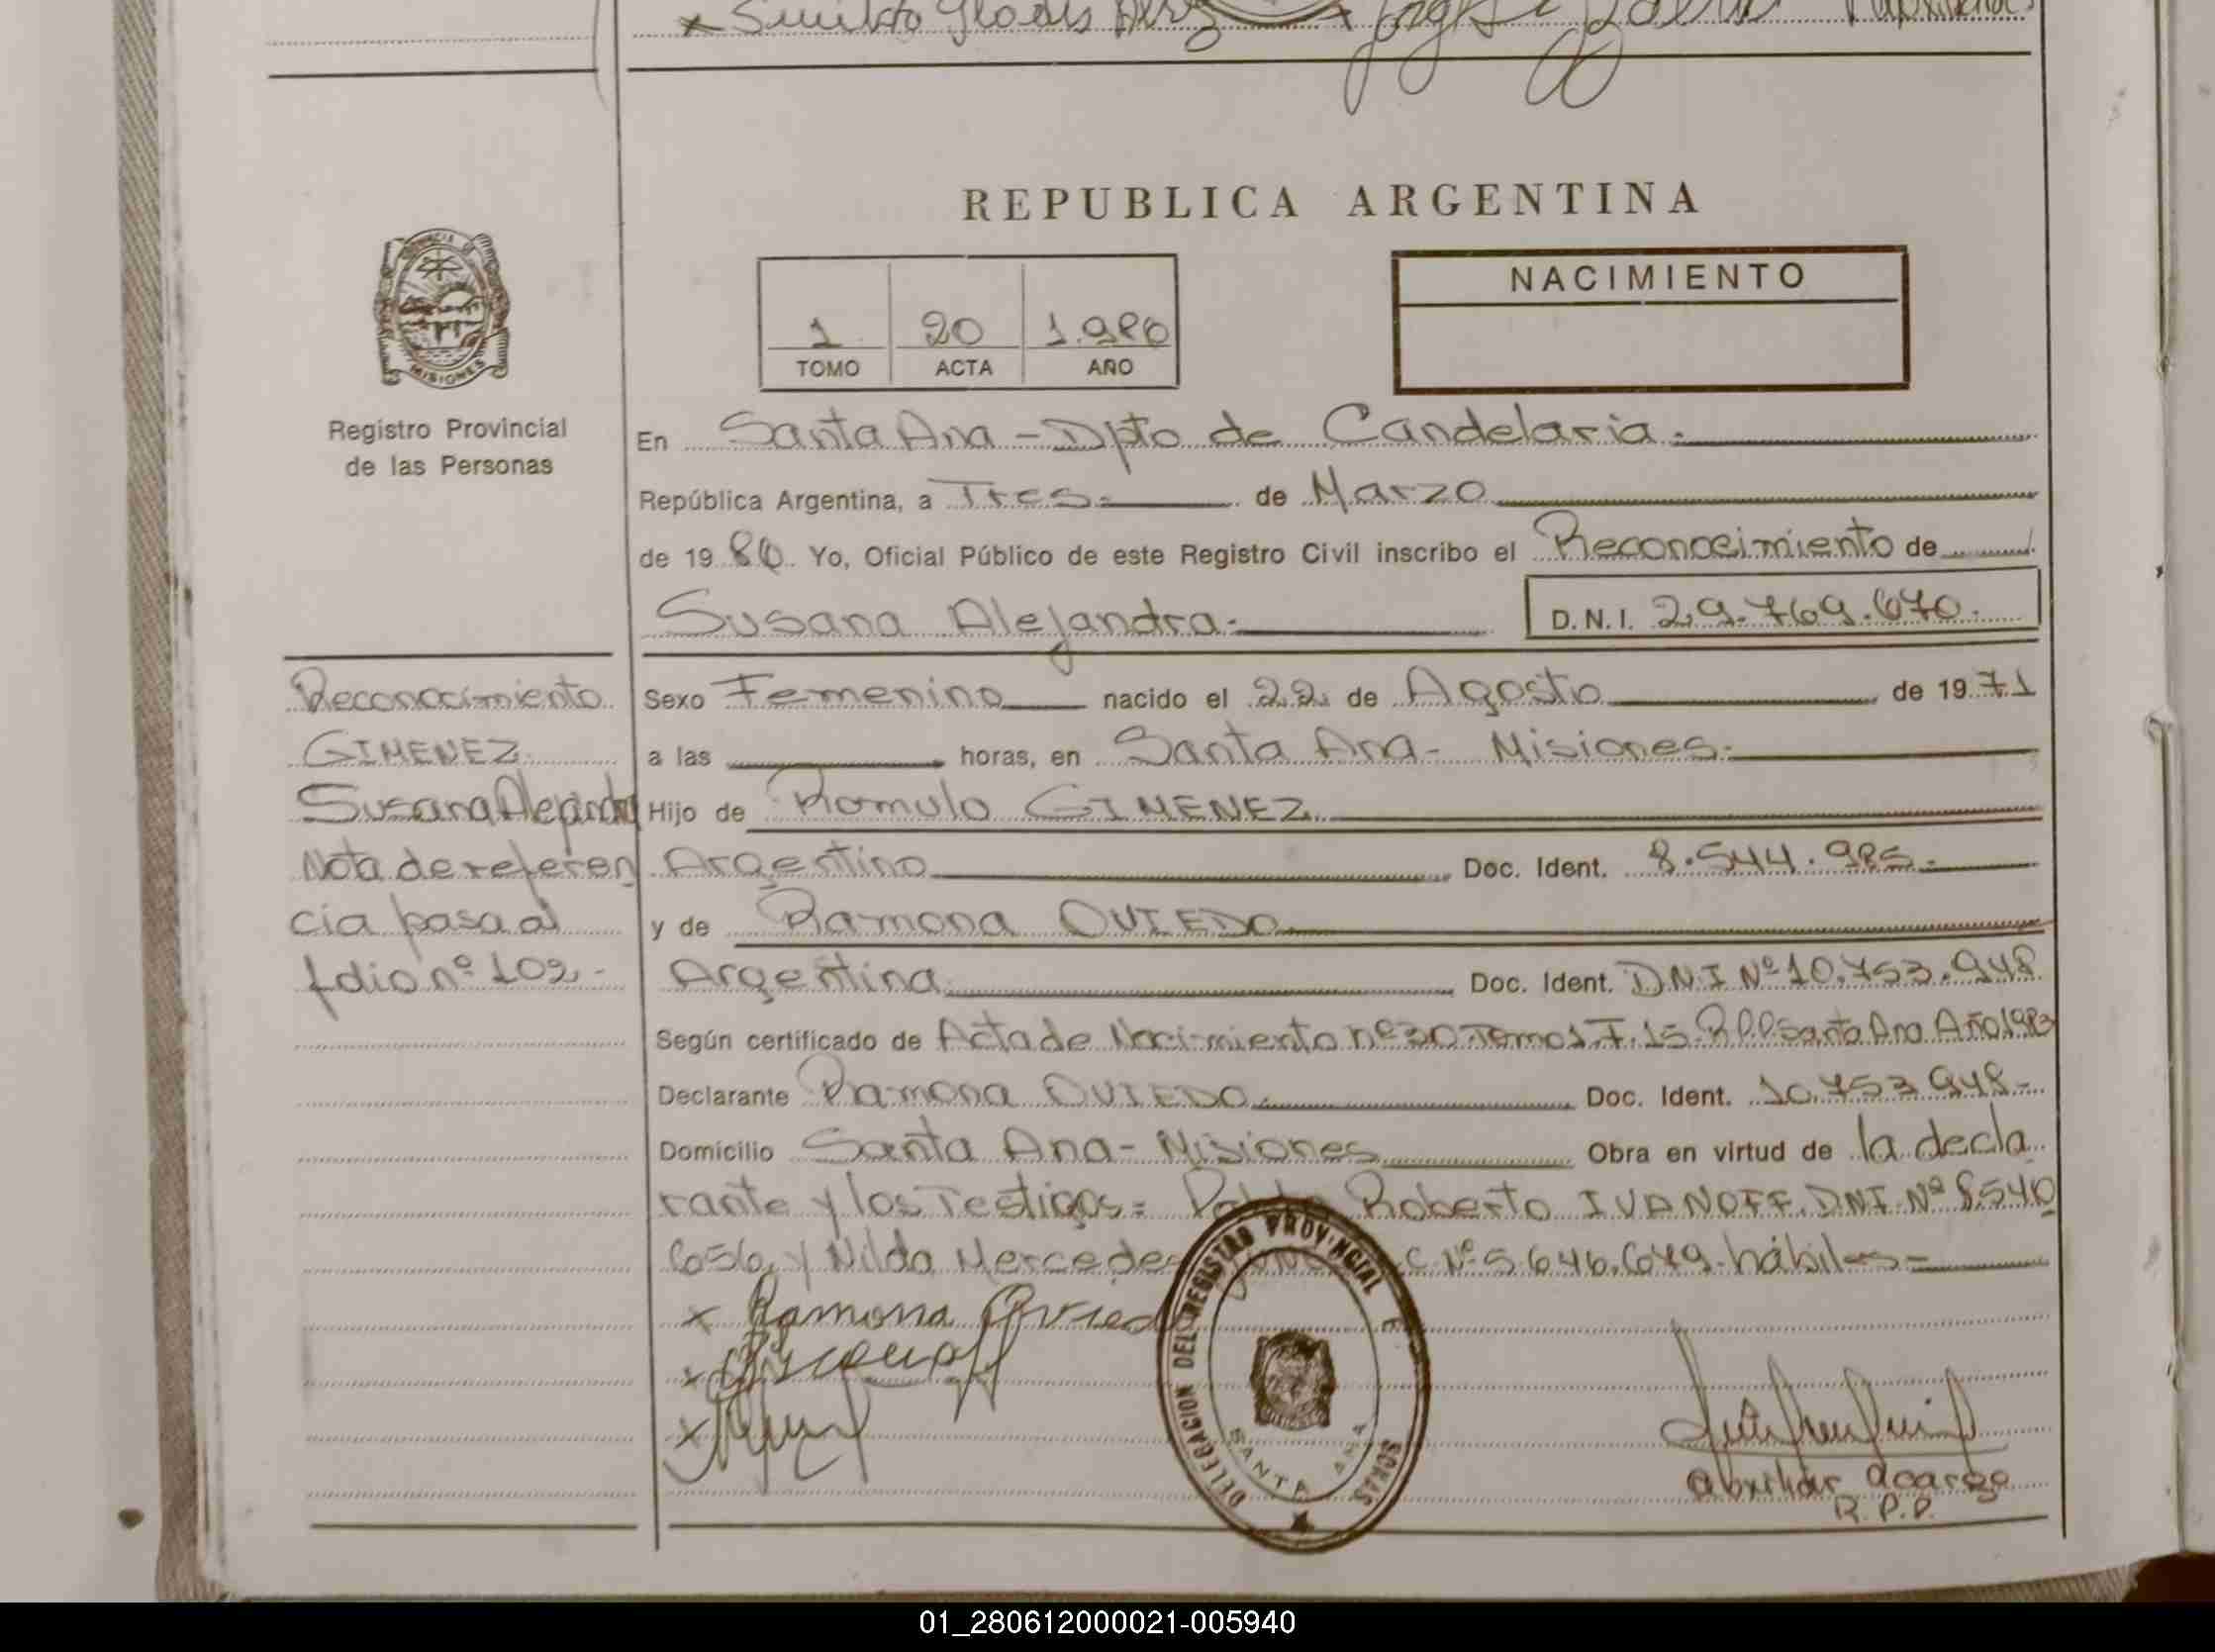 REPUBLICA ARGENTINA
NACIMIENTO
1 20 1.986
TOMO ACTA AÑO
MISIONES
Registro Provincial
de las Personas
En Santa Ana - Dpto de Candelaria.-
República Argentina, a Tres.- de Marzo
de 1986. Yo, Oficial Público de este Registro Civil inscribo el Reconocimiento de
Susana Alejandra.- D.N.I. 29.769.670.-
Reconocimiento
GIMENEZ
Susana Alejandra
Nota de referen
cia pasa al
folio nº 102-
Sexo Femenino nacido el 22 de Agosto de 1971
a las horas, en Santa Ana- Misiones.-
Hijo de Romulo GIMENEZ
Argentino Doc. Ident. 8.544.985.-
y de Ramona OVIEDO
Argentina Doc. Ident. DNI Nº 10.753.948
Según certificado de Acta de Nacimiento nº 30 Tomo 1. F. 15 R.P.P. Santa Ana Año 1983
Declarante Ramona OVIEDO.- Doc. Ident. 10.753.948.-
Domicilio Santa Ana- Misiones Obra en virtud de la decla
rante y los Testigos= Roberto IVANOFF. DNI. Nº 8.540
656, y Nilda Mercedes C Nº 5.646.649. hábiles=
x Ramona Oviedo
x
x
DELEGACION DEL REGISTRO PROVINCIAL
SANTA ANA
Auxiliar acargo
R.P.P.
01_280612000021-005940